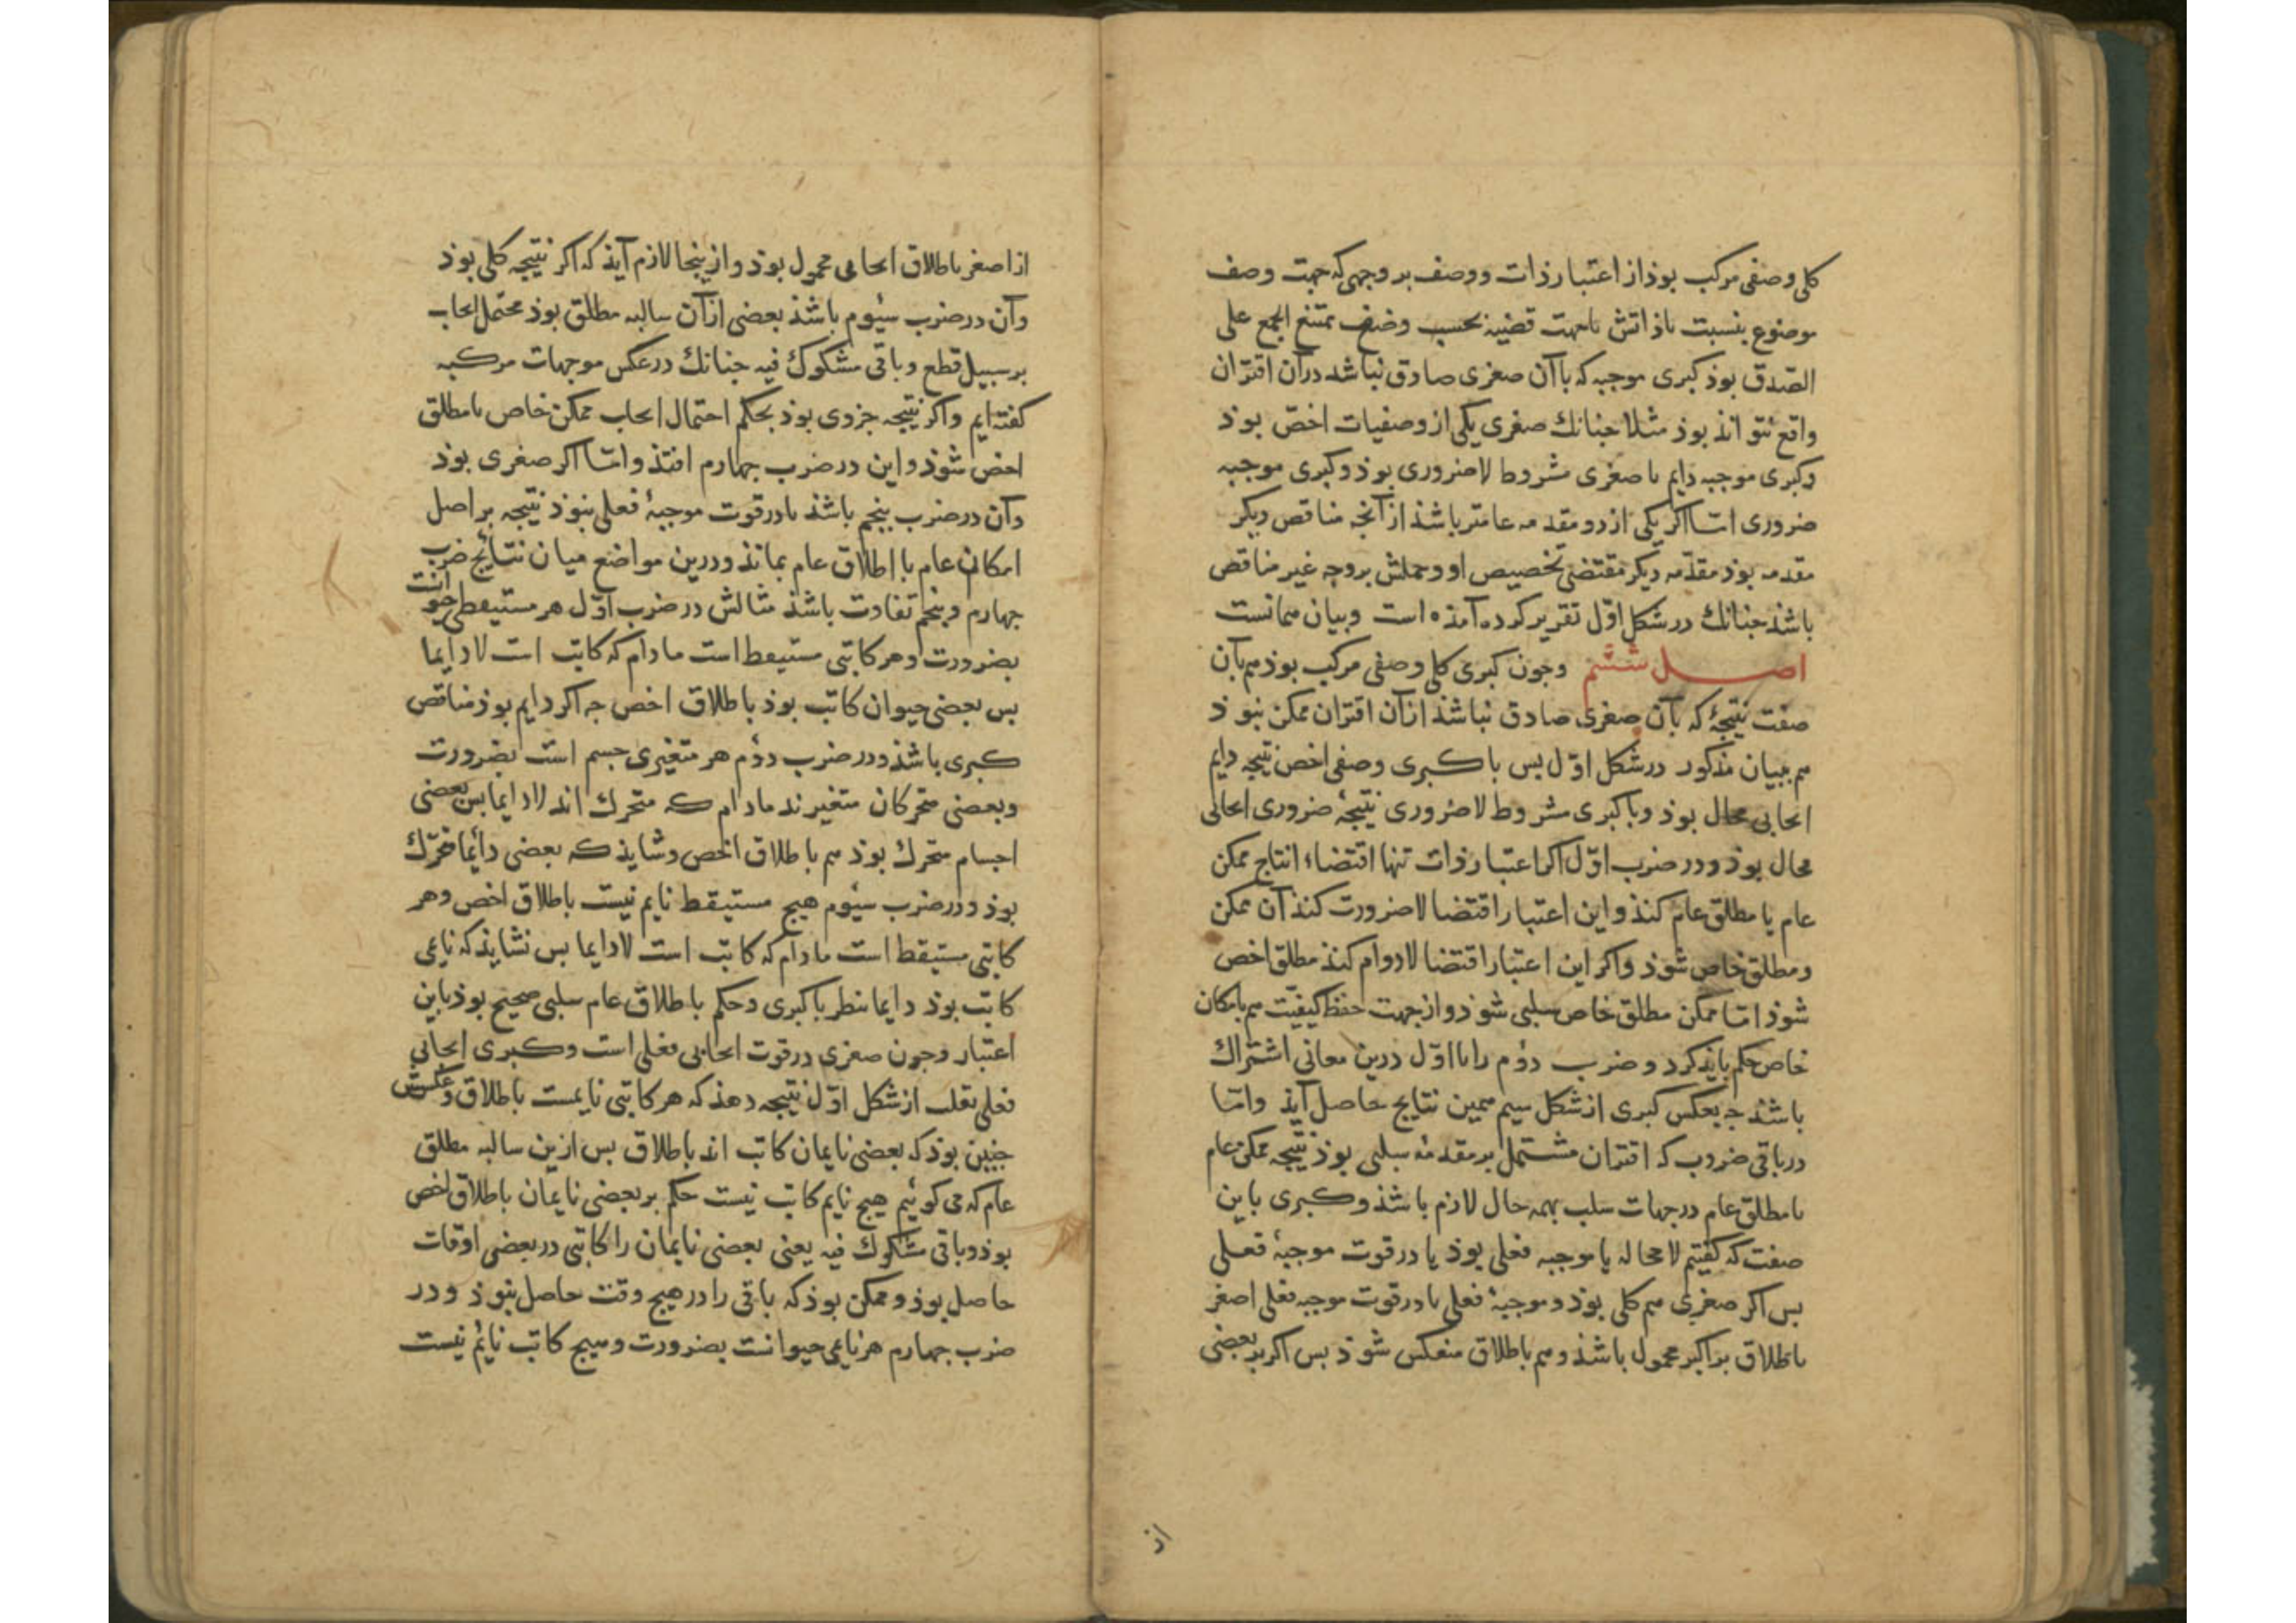 کلی وصفی مرکب بوذ از اعتبار ذات ووصف بر وجهی که جهت وصف
موضوع بنسبت باذاتش باجهت قضیه بحسب وصف ممتنع الجمع علی
الصّدق بوذ کبری موجبه که باآن صغری صادق نباشد درآن اقتران
واقع نتواند بوذ مثلا جنانك صغری یکی از وصفیات اخصّ بوذ
وکبری موجبه دایم یا صغری مشروط لاضروری بوذ وکبری موجبه
ضروری امّا اکر یکی از دو مقدمه عامتر باشذ از آنجه مناقض دیکر
مقدمه بوذ مقدّمه دیکر مقتضی تخصیص او وحملش بر وجه غیر مناقض
باشذ جنانك در شکل اوّل تقریر کرده آمذه است وبیان همانست
اصل ششم وجون کبری کلی وصفی مرکب بوذ هم بآن
صفت نتیجۀ که بآن صغری صادق نباشذ ازآن اقتران ممکن نبوذ
هم ببیان مذکور در شکل اوّل بس با کبری وصفی اخص نتیجه دایم
ایجابی محال بوذ وبا کبری مشروط لاضروری نتیجۀ ضروری ایجابی
محال بوذ ودر ضرب اوّل اکر اعتبار ذات تنها اقتضاء انتاج ممکن
عام یا مطلق عام کنذ واین اعتبار اقتضا لاضرورت کنذ آن ممکن
ومطلق خاص شوذ واکر این اعتبار اقتضا لادوام کنذ مطلق اخص
شوذ امّا ممکن مطلق خاص سلبی شوذ واز جهت حفظ کیفیّت هم بامکان
خاص حکم بایذ کرد وضرب دوٗم را با اوّل درین معانی اشتراك
باشذ جه بعکس کبری از شکل سیم همین نتایج حاصل آیذ وامّا
در باقی ضروب که اقتران مشتمل بر مقدمۀ سلبی بوذ نتیجه ممکن عام
یا مطلق عام در جهات سلب بهمه حال لازم باشذ وکبری باین
صفت که کفتیم لامحاله یا موجبه فعلی بوذ یا در قوت موجبۀ فعلی
بس اکر صغری هم کلی بوذ وموجبۀ فعلی یا در قوت موجبه فعلی اصغر
باطلاق بر اکبر محمول باشذ وهم باطلاق منعکس شوذ بس اکبر بر بعضی
از
از اصغر باطلاق ایجابی محمول بوذ وازینجا لازم آیذ که اکر نتیجه کلی بوذ
وآن در ضرب سیُوم باشذ بعضی ازآن سالبه مطلق بوذ محتمل ایجاب
بر سبیل قطع وباقی مشکوك فیه جنانك در عکس موجهات مرکبه
کفته ایم واکر نتیجه جزوی بوذ بحکم احتمال ایجاب ممکن خاص یا مطلق
اخص شوذ واین در ضرب جهارم افتذ وامّا اکر صغری بوذ
وآن در ضرب بنجم باشذ یا در قوت موجبۀ فعلی نبوذ نتیجه بر اصل
امکان عام یا اطلاق عام بمانذ ودرین مواضع میان نتایج ضرب
جهارم وبنجم تفاوت باشذ مثالش در ضرب اوّل هر مستیقظی حیوانست
بضرورت وهر کاتبی مستیقظ است مادام که کاتب است لادایما
بس بعضی حیوان کاتب بوذ باطلاق اخص جه اکر دایم بوذ مناقض
کبری باشذ ودر ضرب دوٗم هر متغیری جسم است بضرورت
وبعضی متحرکان متغیرند مادام که متحرك اند لادایما بس بعضی
اجسام متحرك بوذ هم باطلاق اخص وشایذ که بعضی دائما متحرّك
بوذ ودر ضرب سیُوم هیج مستیقظ نایم نیست باطلاق اخص وهر
کاتبی مستیقظ است مادام که کاتب است لادایما بس نشایذ که نایمی
کاتب بوذ دایما بنظر با کبری وحکم باطلاق عام سلبی صحیح بوذ باین
اعتبار وجون صغری در قوت ایجابی فعلی است وکبری ایجابی
فعلی بقلب از شکل اوّل نتیجه دهذ که هر کاتبی نایمست باطلاق وعکسش
جنین بوذ که بعضی نایمان کاتب اند باطلاق بس ازین سالبه مطلق
عام که می کوئیم هیج نایم کاتب نیست حکم بر بعضی نایمان باطلاق اخص
بوذ وباقی مشکوك فیه یعنی بعضی نایمان را کاتبی در بعضی اوقات
حاصل بوذ وممکن بوذ که باقی را در هیج وقت حاصل نبوذ ودر
ضرب جهارم هر نایمی حیوانست بضرورت وهیج کاتب نایم نیست